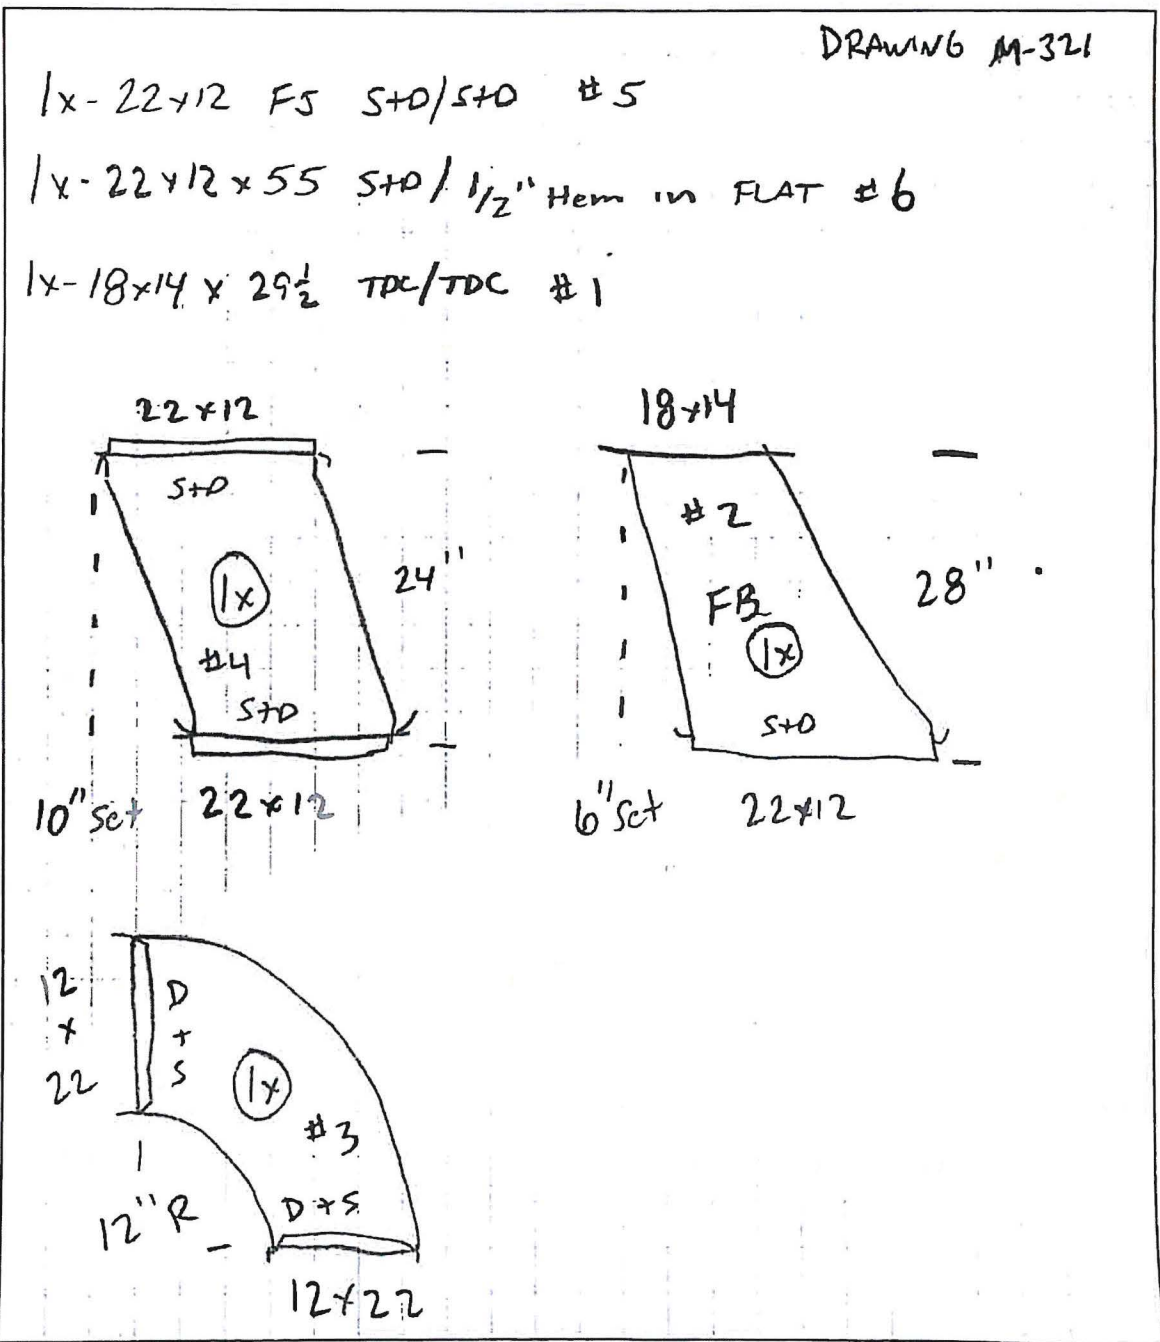 DRAWING M-321
1x- 22x12 FS S+D/S+D #5
1x- 22x12x55 S+D/ 1/2" Hem in FLAT #6
1x-18x14 x 29 1/2 TDC/TDC #1
22x12
S+D
1x
24"
#4
S+D
10" Set
22x12
18x14
#2
28"
FB
1x
S+D
6" Set
22x12
12
x
22
D
+
S
1x
#3
12" R
D+S
12x22